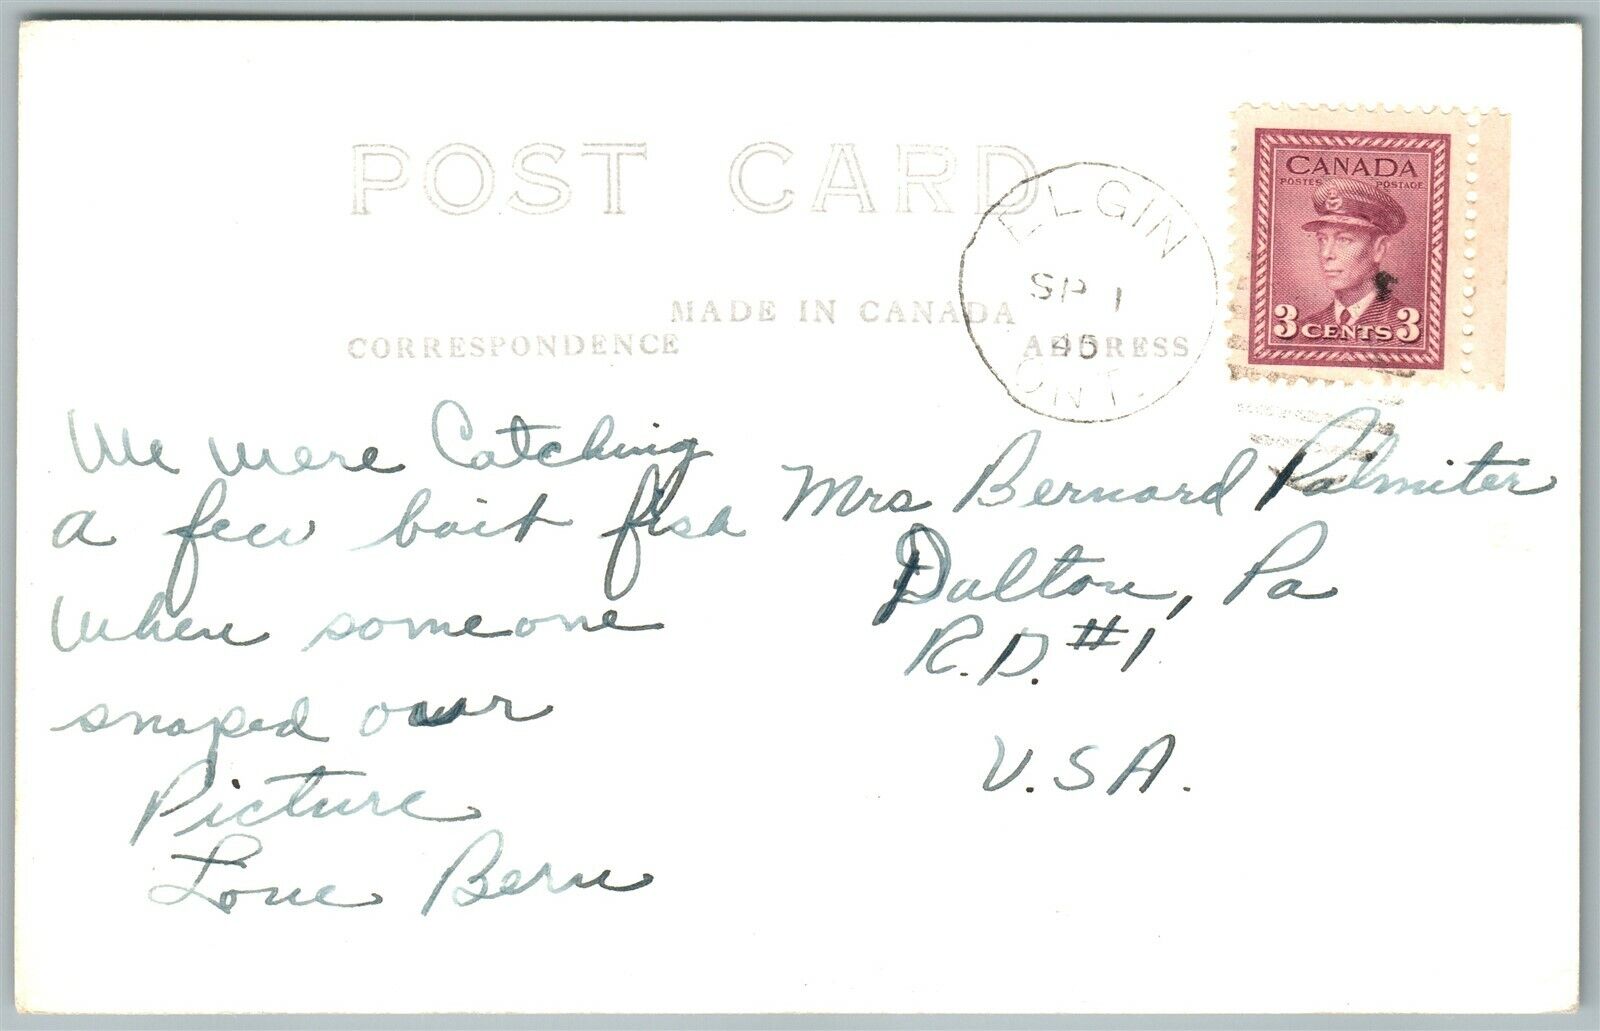 POST CARD
CANADA
POSTES POSTAGE
3 CENTS 3
ELGIN
SP 1
45
ONT.
MADE IN CANADA
CORRESPONDENCE
ADDRESS
We were Catching
a few bait fish
when someone
snaped our
Picture
Love Bern
Mrs Bernard Palmiter
Dalton, Pa
R.D. #1
U.S.A.